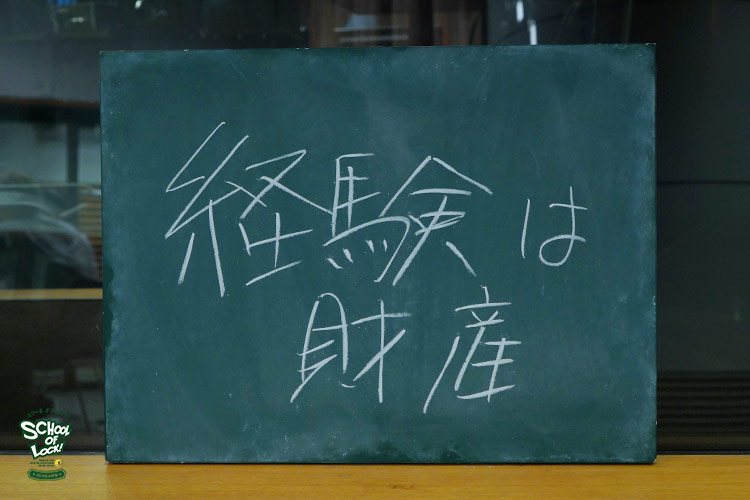 経験は
財産
SCHOOL
OF
LOCK!